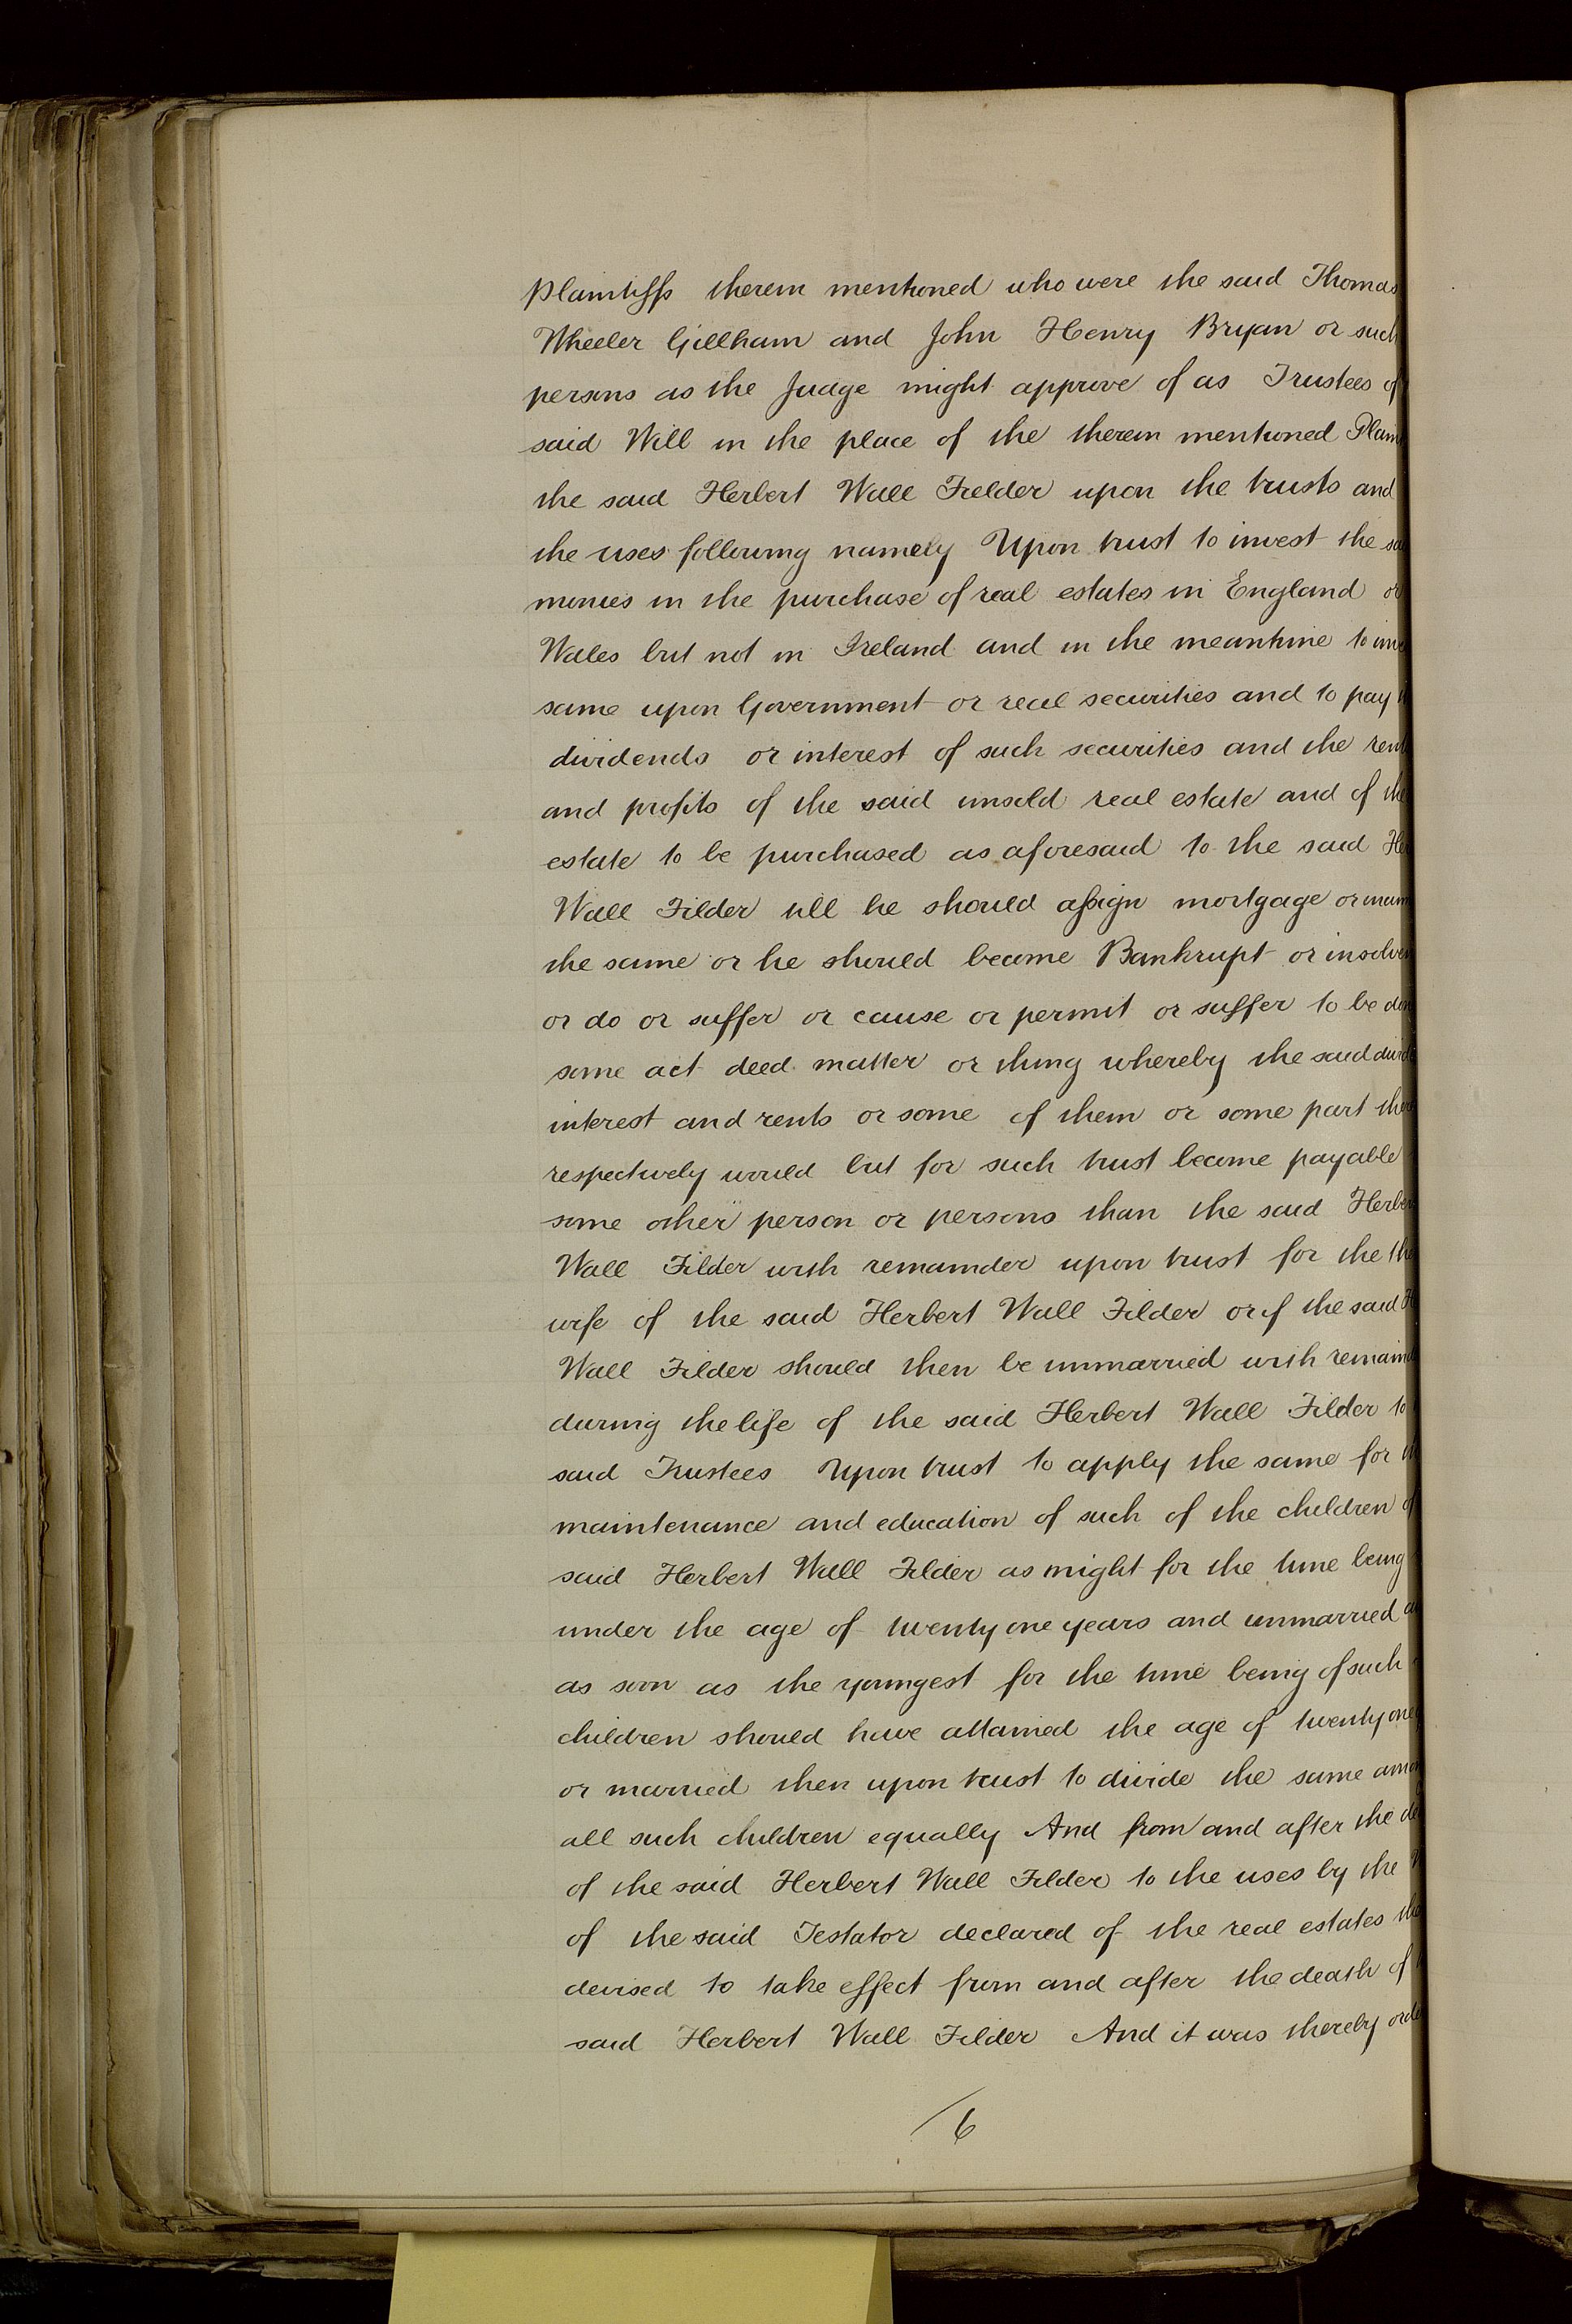 Plaintiffs therein mentioned who were the said Thomas
Wheeler Gillham and John Henry Bryan or such
persons as the Judge might approve of as Trustees of
said Will in the place of the therein mentioned
the said Herbert Wall Fielder upon the trusts and
the uses following namely Upon trust to invest the
monies in the purchase of real estates in England or
Wales but not in Ireland and in the meantime to
same upon Government or real securities and to pay
dividends or interest of such securities and the
and profits of the said unsold real estate and of the
estate to be purchased as aforesaid to the said
Wall Filder till he should assign mortgage or
the same or he should become Bankrupt or
or do or suffer or cause or permit or suffer to be
some act deed matter or thing whereby the said
interest and rents or some of them or some part
respectively would but for such trust become payable
some other person or persons than the said
Wall Filder with remainder upon trust for the
wife of the said Herbert Wall Filder or if the said
Wall Filder should then be unmarried with
during the life of the said Herbert Wall Filder to
said Trustees Upon trust to apply the same for
maintenance and education of such of the children
said Herbert Wall Filder as might for the time being
under the age of twenty one years and unmarried
as soon as the youngest for the time being of such
children should have attained the age of twenty one
or married then upon trust to divide the same
all such children equally And from and after the
of the said Herbert Wall Filder to the uses by the
of the said Testator declared of the real estates
devised to take effect from and after the death of
said Herbert Wall Filder And it was thereby
6